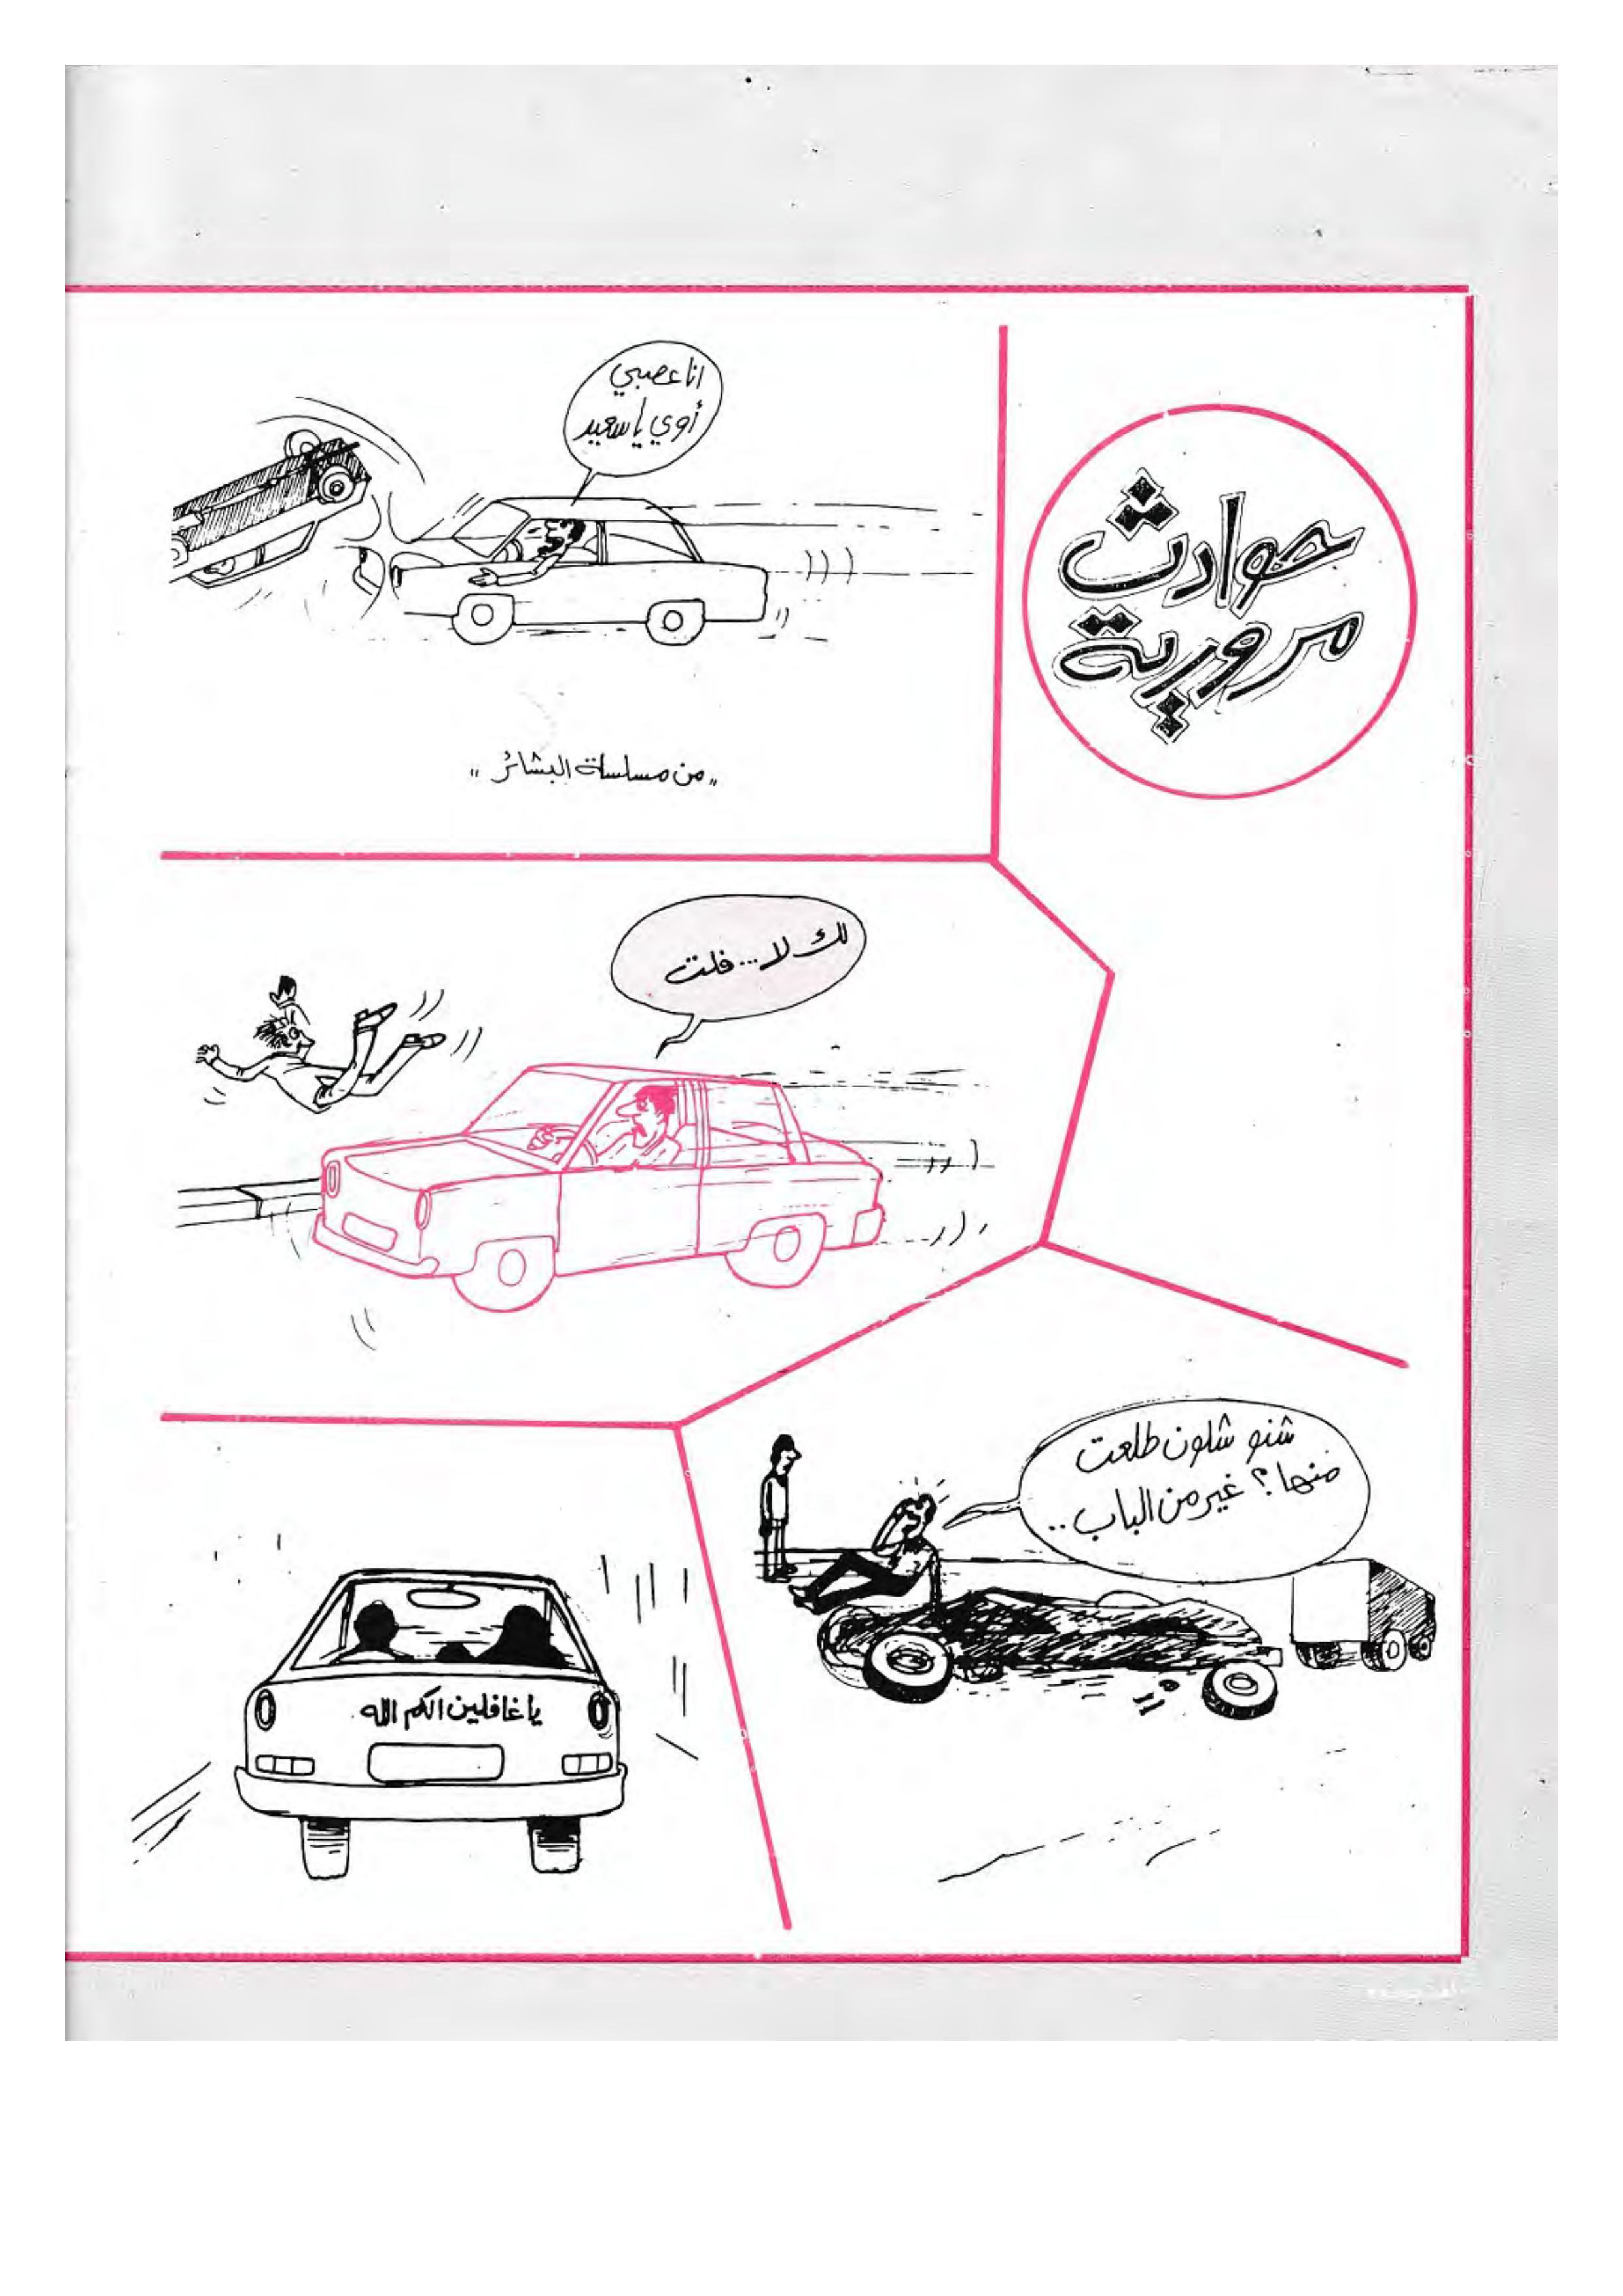 حوادث
مرورية
انا عصبي
أوي يا سعيد
„ من مسلسلة البشائر "
لك لا... فلت
شنو شلون طلعت
منها؟ غير من الباب..
يا غافلين الكم الله